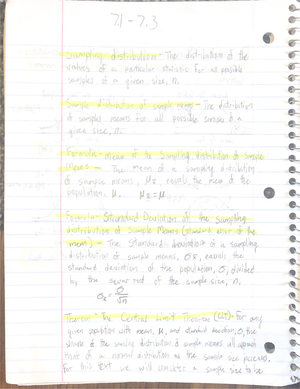 7.1 - 7.3
Sampling distribution - The distribution of the
values of a particular statistic for all possible
samples of a given size, n.
Sample distribution of sample means - The distribution
of sample means for all possible samples of a
given size, n.
Formula - mean of the Sampling distribution of sample
means - The mean of a sampling distribution
of sample means, μx̄, equals the mean of the
population, μ. μx̄ = μ
Formula: Standard Deviation of the Sampling
distribution of Sample Means (standard error of the
mean) - The standard deviation of a sampling
distribution of sample means, σx̄, equals the
standard deviation of the population, σ, divided
by the square root of the sample size, n.
σx̄ = σ/√n
Theorem: The Central Limit Theorem (CLT) - For any
given population with mean, μ, and standard deviation, σ, the
of the sampling distribution of sample means will approach
that of a normal distribution as the sample size increases.
For this text we will consider a sample size to be